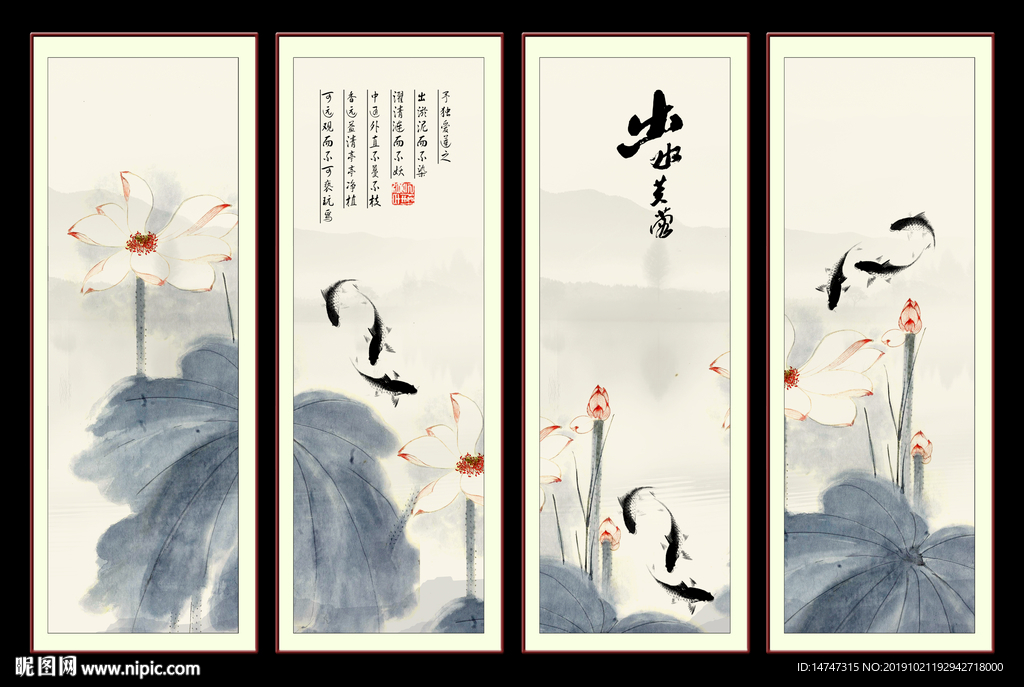 予独爱莲之
出淤泥而不染
濯清涟而不妖
中通外直不蔓不枝
香远益清亭亭净植
可远观而不可亵玩焉
出水芙蓉
昵图网 www.nipic.com
ID:14747315 NO:20191021192942718000